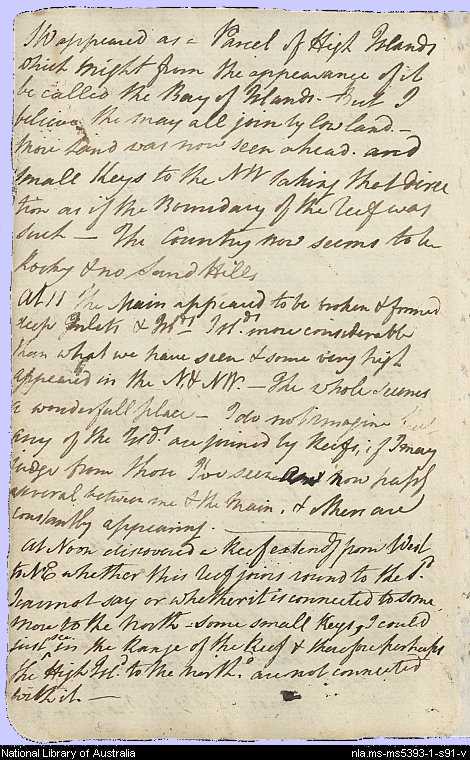 SW appeared as a Parcel of High Islands
which might from the appearance of it
be called the Bay of Islands - But I
believe the may all join by low land. -
More Land was now seen ahead. and
small Keys to the NW taking that direc
tion as if the Boundary of the Reef was
such - The Country now seems to be
Rocky & no Sand Hills
At 11 The Main appeared to be broken & formed
deep Inlets & Isds more considerable
than what we have seen & some very high
appeared in the N & NW. - The whole seems
a wonderfull place - I do not imagine
any of the Isds. are joined by Reefs, if I may
judge from those I've seen and now passg
several between me & the Main. & others are
constantly appearing.
At Noon discovered a Reef extendg from West
to NE whether this reef joins round to the
I cannot say or whether it is connected to some
more to the north - some small Keys, I could
just see in the Range of the Reef & therefore perhaps
the High Isds. to the northd. are not connected
with it -
National Library of Australia
nla.ms-ms5393-1-s91-v